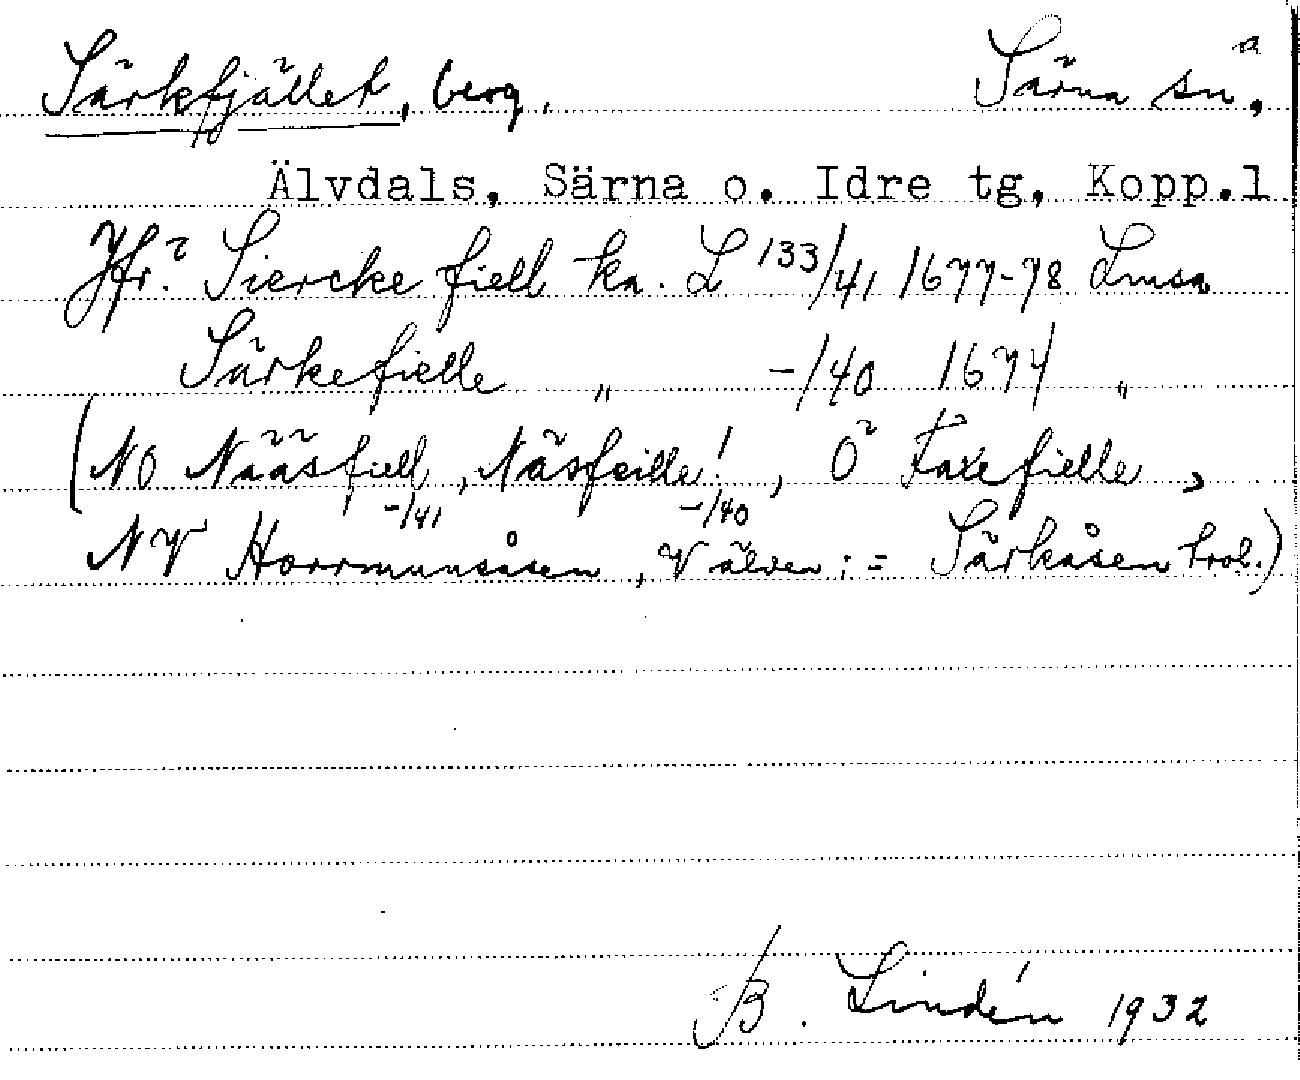 Särkfjället, berg. Särna sn. a
Älvdals, Särna o. Idre tg, Kopp.l
Jfr. Siercke fiell ka. L 133/41 1677-78 Lmsa
Särkefielle " -/40 1674 "
(NO Nääsfiell -/41, Näsfeille! -/40, Ö Faxefielle,
NV Horrmunsåsen, V älven; = Särkåsen trol.)
B. Lindén 1932